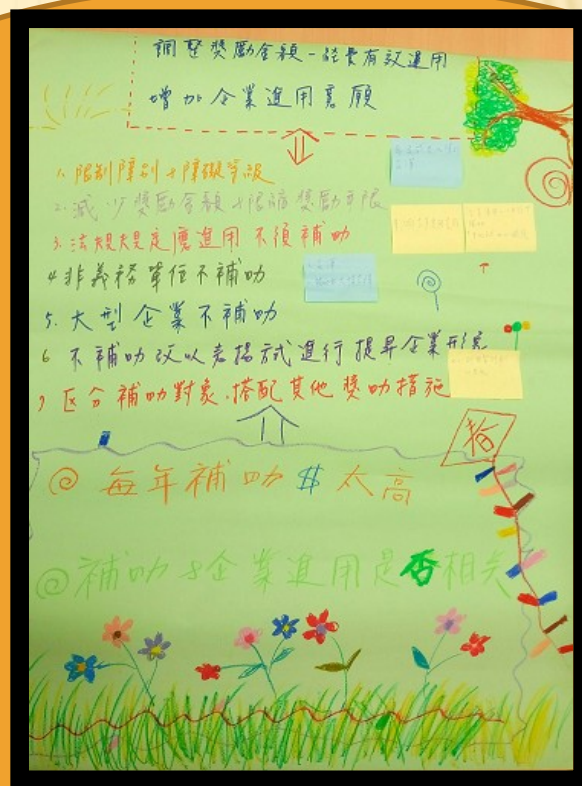 調整獎勵金額－經費有效運用
增加企業進用意願
1. 限制障別＋障礙等級
2. 減少獎勵金額＋限縮獎勵年限
3. 法規規定應進用 不須補助
4 非義務單位不補助
5. 大型企業不補助
6 不補助改以表揚方式進行提昇企業形象
7 区分補助對象.搭配其他獎助措施
@ 每年補助$太高
@補助與企業進用是否相关